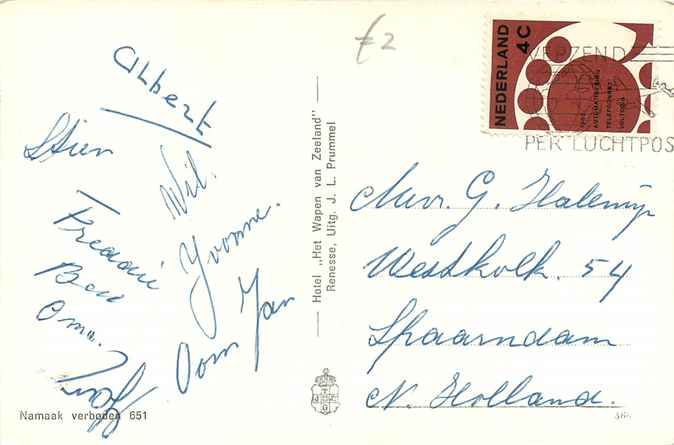 Albert
Stien
Wil.
Freddie
Yvonne.
Ben
Oma.
Oom Jan
Namaak verboden 651
Hotel „Het Wapen van Zeeland"
Renesse, Uitg. J. L. Prummel
£2
NEDERLAND
4C
1962
AUTOMATISERING
TELEFOONNET
VOLTOOID
VERZEND
PER LUCHTPOS
Mevr. G.
Westkolk. 54
Spaarndam
N. Holland.